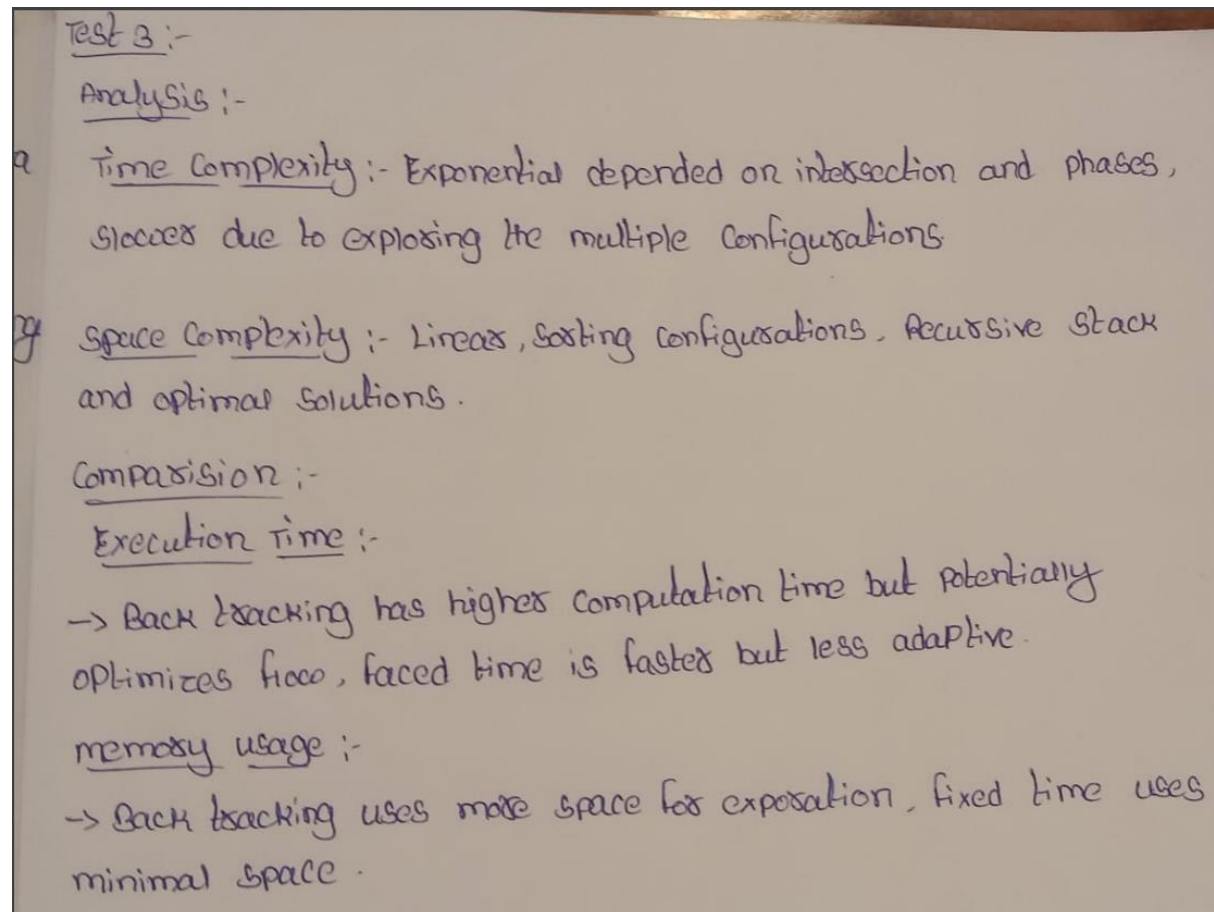 Test 3 :-
Analysis :-
a Time Complexity :- Exponential depended on intersection and phases,
slower due to exploring the multiple Configurations
Space Complexity :- Linear, Sorting Configurations, Recursive Stack
and optimal Solutions.
Comparision :-
Execution Time :-
-> Back tracking has higher computation time but potentially
optimizes flow, faced time is faster but less adaptive.
memory usage :-
-> Back tracking uses more space for exporation, fixed time uses
minimal space.